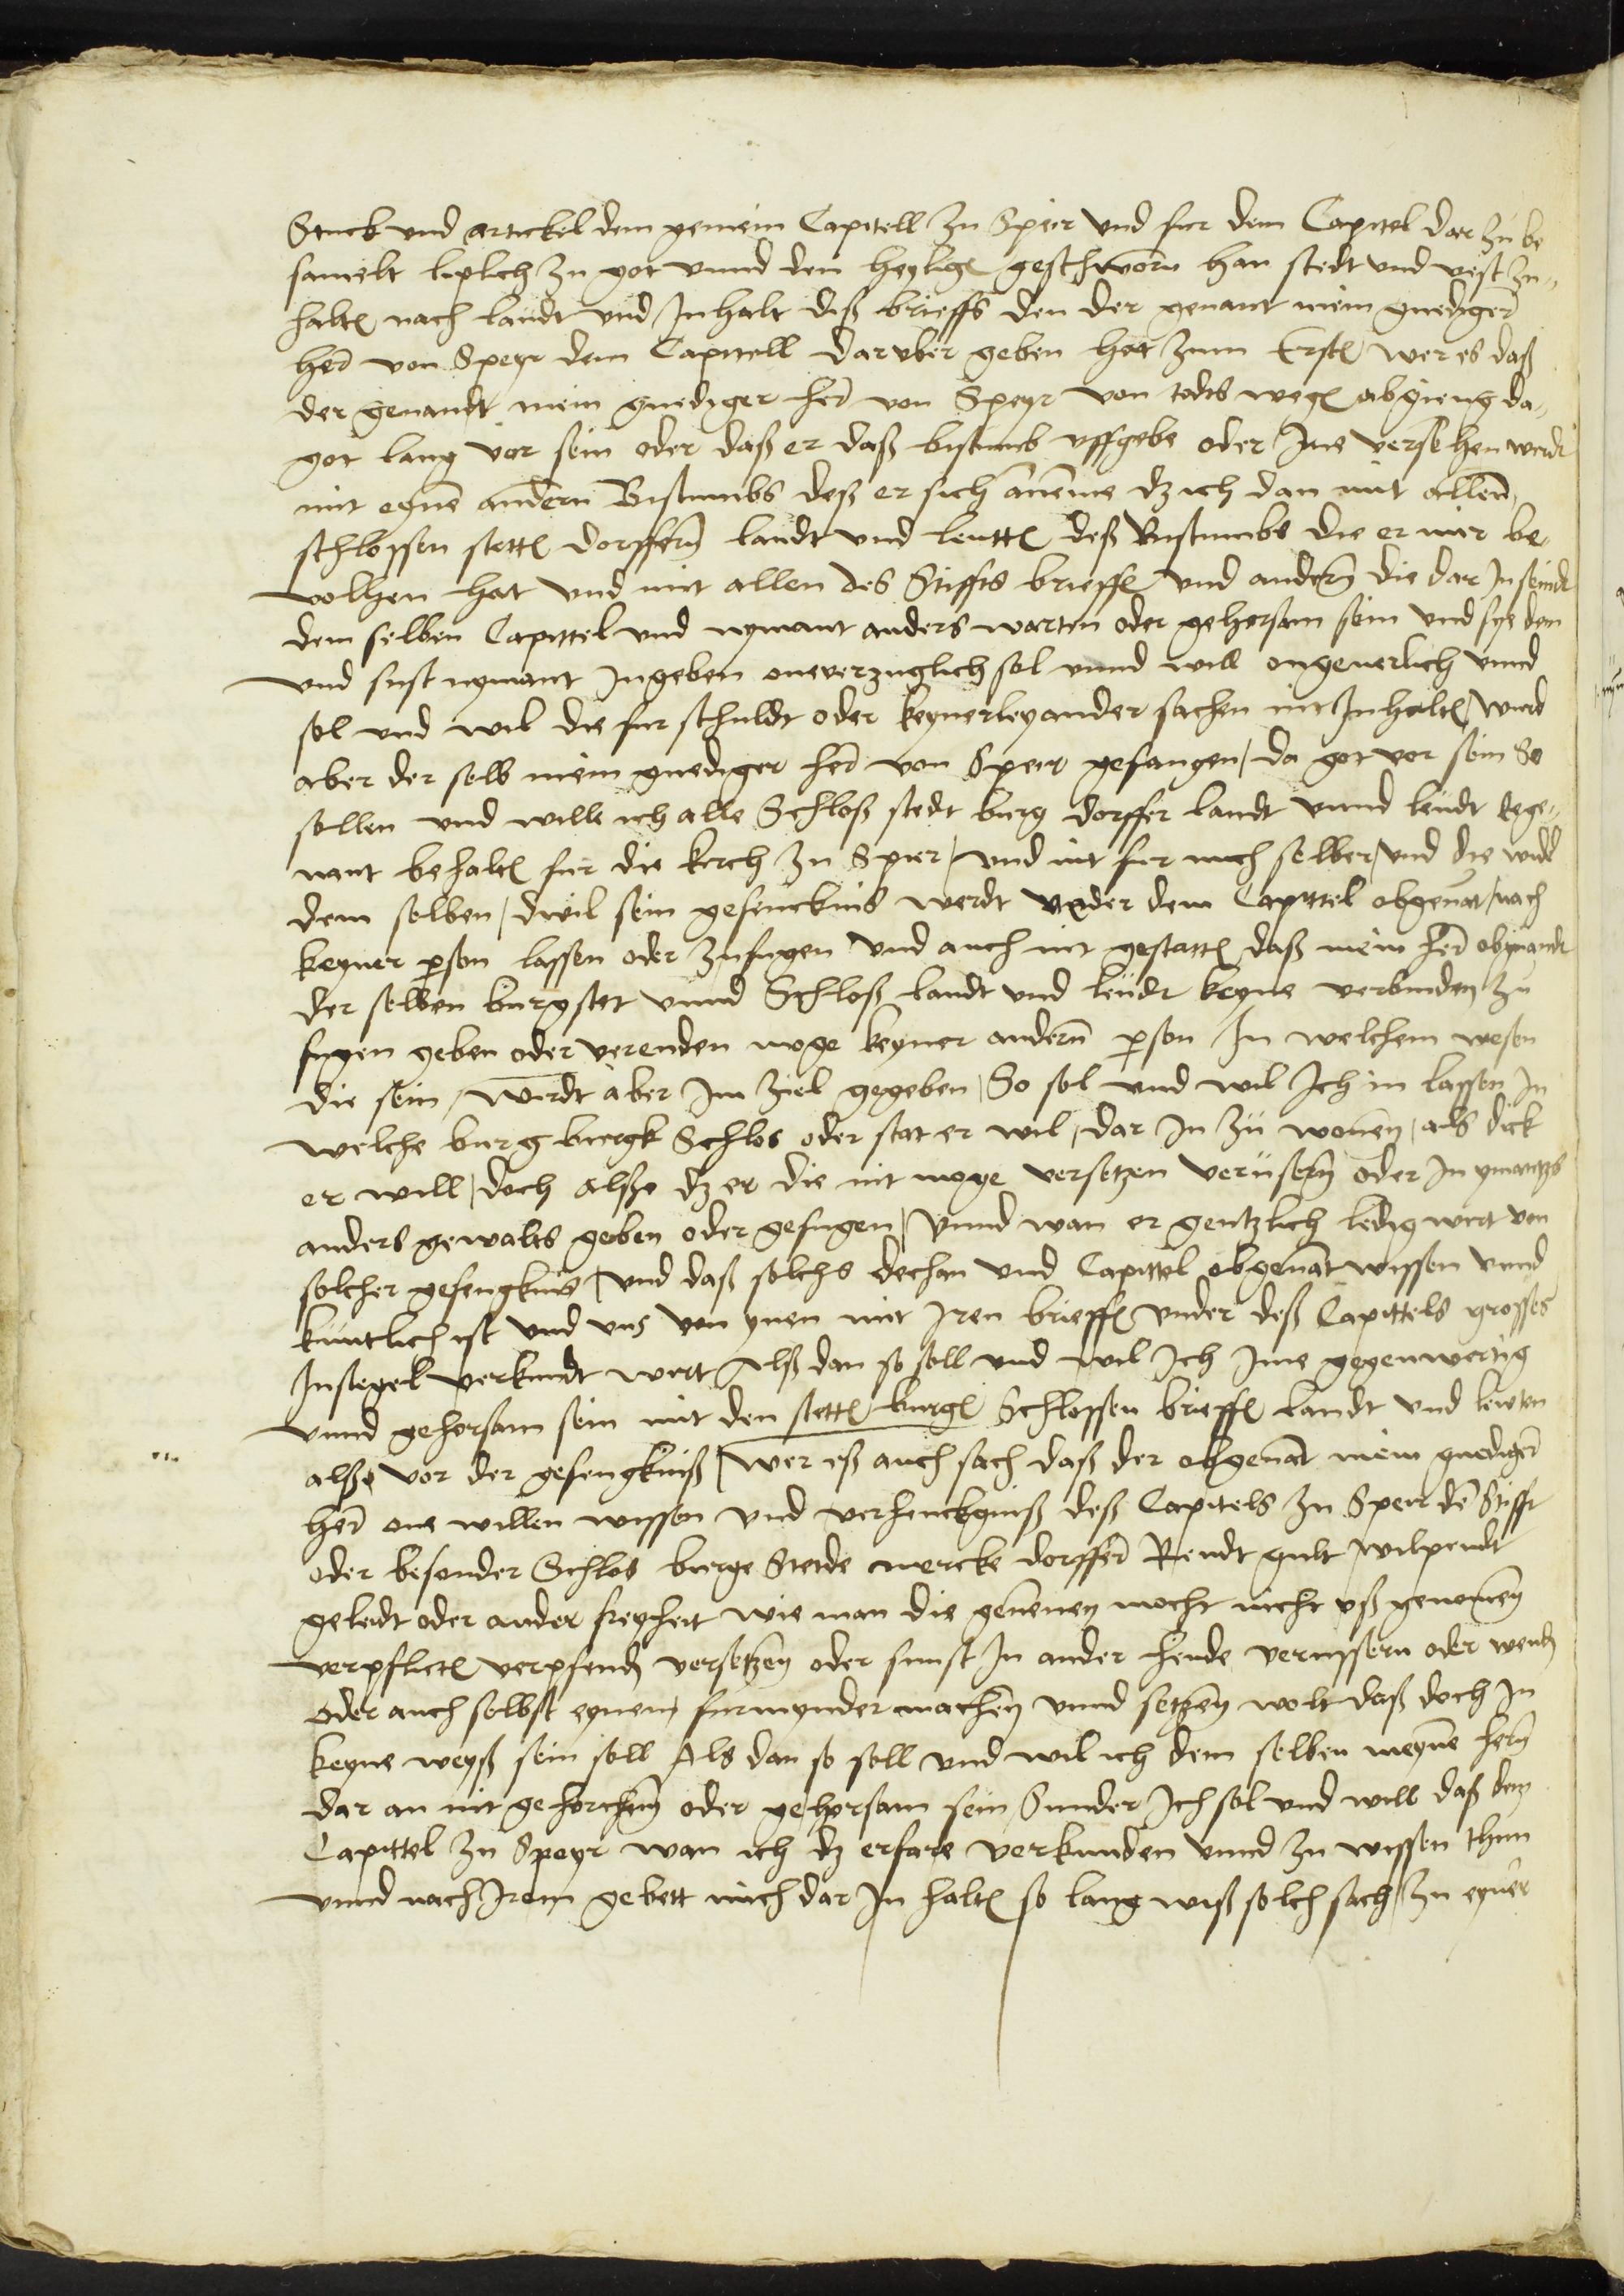 Stuck und artickel dem gemein Capitell zu Speier und fur dem Capitel dar zu be
samelt liplch zu got vnnd den heylig geschworn han stedt und vest zu„
halt nach laudt und Inhalt diß brieffs den der genant mein gnediger
her von Speyr dem Capittell daruber geben hat zum Erst wer es daß
der genandt mein gnediger her von Speyr von todts weg abgieng da„
got lang vor sein oder daß er daß bistumb uffgebe oder Ime versehen werdt
mit eyne andern Bistumbs deß er sich aneme dz ich dan mit allen
schlossen stett dorffern landt und leutt deß Bistumbs die er mir be„
volhen hat und mit allen des Stiffts brieff und andern die dar In seindt
dem selben Capittel und nymant anders warten oder gehorsam sein und sye dem
und sust nymant Ingeben oneverzuglich sol vnnd will ongeuerlich vnnd
sol und wil die fur schuldt oder keynerley ander sachen nit Inhalt / wurd
aber der selb mein gnediger her von Speir gefangen / da got vor sein So
sollen und wille ich alle Schloß stedt burg dorffer landt vnnd leudt
nant behalt fur die kirch zu Speier / und nit fur mich selber / und die
dem selben / dwil sein gefenckniß werdt under dem Capittel obgenat / nach
keyner pson lassen oder zufugen und auch nit gestatt daß mein her obgnandt
der selben burg stet vnnd Schloß landt und leudt keyne verbinden zu
fugen geben oder verenden moge keyner andern pson In welchem wesen
die sein / wirdt aber Im ziel gegeben / So sol und wil Ich in lassen In
welche burg burgk Schlos oder stat er wil / dar In zu wonen / als dick
er will / doch alßo dz er die nit moge versetzen verüsern oder In ymantzs
anders gewalts geben oder gefugen / Vnnd wan er gentzlich ledig wirt von
solcher gefengkniß / und daß solchs dechan und Capittel obgenat wissen vnnd
kuntlich ist und uns von ynen mit Iren brieff under deß Capittels grosses
Insiegel verkundt wirt Alß dan so soll und wil Ich Ime gegenwertig
vnnd gehorsam sein mit den stett burg Schlossen brieff landt und leuten
alßo vor der gefengkniß / wer eß auch sach daß der obgenat mein gnediger
her one willen wissen und verhenckgniß deß Capitels zu Speir de Stifft
oder besonder Schlos burge Stetde mercke dorffer Rendt gult wilpendt
geleidt oder ander freyheit wie man die genenen mocht nicht uß genomen
verpflict verpfend versetzen oder sunst In ander hende verussern oder wend
oder auch selbst eynen furmynder machen vnnd setzen wolt daß doch In
keyne weyß sein soll Als dan so soll und wil ich dem selben meyne hern
dar an nit gehorchen oder gehorsam sein Sunder Ich sol und will daß dem
Capittel zu Speyr wan ich dz erfare verkunden vnnd zu wissen thun
vnnd nach Irem gebett mich dar In halt so lang wiß solch sach / zu eyner